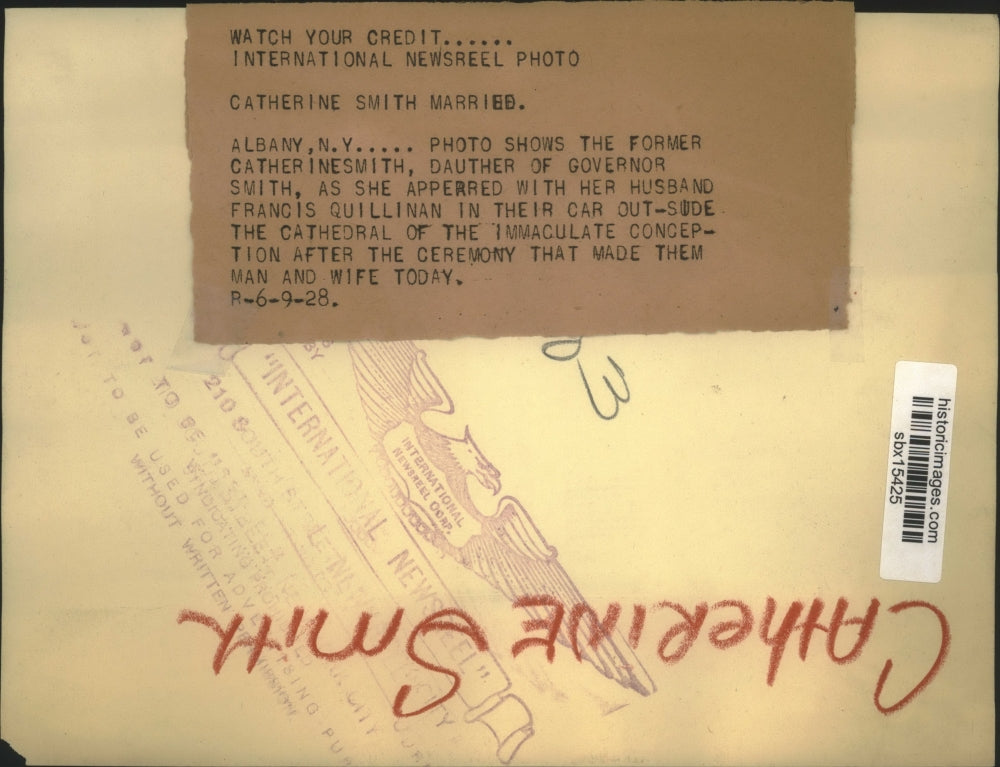 WATCH YOUR CREDIT......
INTERNATIONAL NEWSREEL PHOTO
CATHERINE SMITH MARRIED.
ALBANY,N.Y..... PHOTO SHOWS THE FORMER
CATHERINESMITH, DAUTHER OF GOVERNOR
SMITH, AS SHE APPERRED WITH HER HUSBAND
FRANCIS QUILLINAN IN THEIR CAR OUT-SUDE
THE CATHEDRAL OF THE IMMACULATE CONCEP-
TION AFTER THE CEREMONY THAT MADE THEM
MAN AND WIFE TODAY.
R-6-9-28.
BY
"INTERNATIONAL NEWSREEL"
210 SOUTH
INTERNATIONAL
NEWSREEL CORP.
TO BE USED FOR ADVERTISING
WITHOUT WRITTEN
historicimages.com
sbx15425
CAtheRINE SmitH